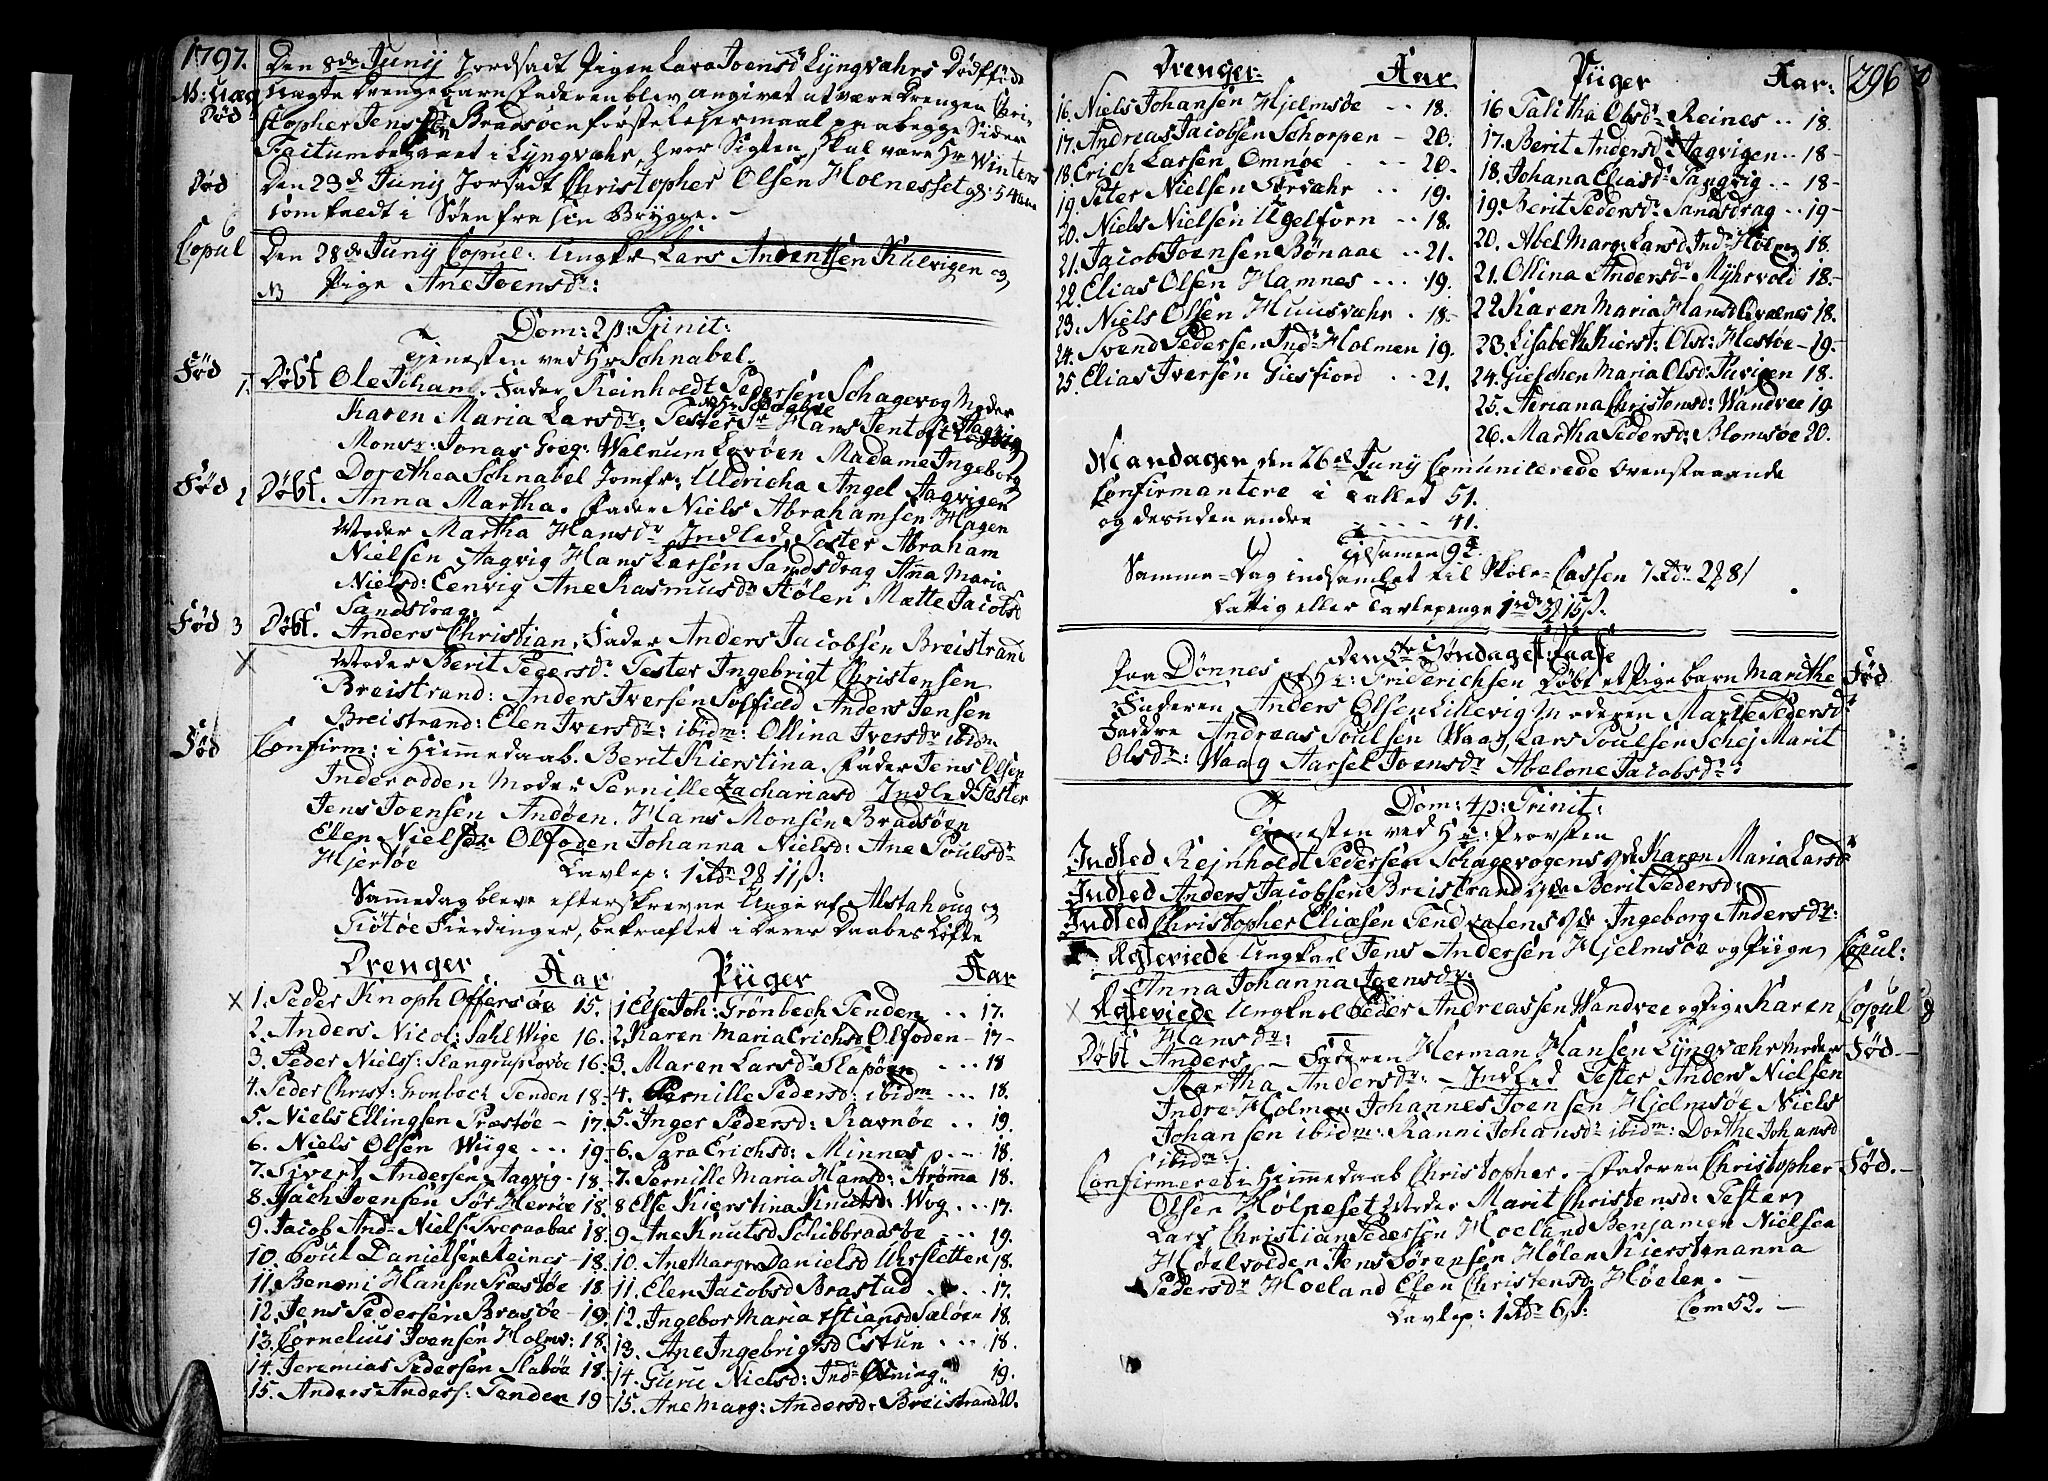 1797.
Den 8de Junij Jordfæst Pigen Lara Joensdr Lyngvæhrs Dødfødt
N: uæg
Død
uægte Drengebarn Faderen blev angivet at være Drengen Chri-
stopher Jenssen Bradsøen første Lejermaal paa begge Sider
Factum begaaet i Lyngvæhr, hvor Sigten skal være Hr Winters
Død
Den 23de Junij Jordfæst Christopher Olsen Holnesset gl: 54 aar
som faldt i Søen fra sin Brygge. -
Copul
Den 28de Junij Copul: Ungkr Lars Andersen Kulvigen og
NB Pige Ane Joensdr:
Dom: 2 p: Trinit:
Tjenesten ved Hr Schnabel.
Fød
1. Døbt Ole Johan. Fader Reinholdt Pedersen Schagevog Moder
Karen Maria Larsdr: Tester Sr Hans Jentoft
Monsr: Jonas Greg: Walnum Lovøen Madame Ingeborg
Dorethea Schnabel Jomfr: Uldricha Angel Aagvigen
Fød 2 Døbt. Anna Martha. Fader Niels Abrahamsen Hagen
Moder Martha Hansdr Indled Tester Abraham
Nielsen Aagvig Hans Larsen Sandsdrag Anna Maria
Nielsd: Eenvig Ane Rasmusdr Hølen Mætte Jacobsd
Sandsdrag.
Fød 3 Døbt. Anders Christian. Fader Anders Jacobsen Breistrand
Moder Berit Pedersdr Tester Ingebrigt Christensen
Breistrand: Anders Iversen Anders Jensen
Breistrand: Elen Iversdr: ibidm: Ollina Iversdr ibidm
Fød
Confirm: i Hjemmedaab. Berit Kierstina. Fader Jens Olsen
Inderodden Moder Pernille Zachariasd Indled Tester
Jens Joensen Andøen. Hans Monsen Bradsøen
Elen Nielsdr Olfoden Johanna Nielsd: Ane Poulsdr
Hjertøe Tavlep: 1 rdr 2 ₰ 11 ß:
Sammedag bleve efterskrevne Unge af Alstahoug og
Tiøtøe Fierdinger, bekræftet i deres Daabes Løfte
Drenger Aar Piiger Aar
1. Peder Knoph Offersen 15. 1 Else Joh: Grønbech Tenden .. 17.
2. Anders Nicol: Dahl Wige 16. 2. Karen Maria Erichsd Olfoden - 17 -
3. Peder Niels: Slangrup Lovøe 16. 3. Maren Larsdr Slapøen ... 18
4. Peder Christ: Gronbech Tenden 18. 4. Pernille Pedersd: ibidm ... 18.
5. Niels Ellingsen Præstøe - 17. 5. Inger Pedersd: Ravnøe .. 19.
6. Niels Olsen Wiige ... 19. 6. Sara Erichsd: Minnes ... 18.
7. Sivert Andersen Aagvig - 18. 7. Pernille Maria Hansd: Strømma 18.
8. Isach Joensen Sør Herøe 18. 8 Else Kierstina Knutsd: Wog ... 17.
9. Jacob And: Niels: Sveraabas 18. 9 Ane Knutsd Schibbradsøe ... 19.
10. Poul Danielsen Reines - 18. 10. Ane Margr Danielsd Ursletten 18.
11. Benoni Hansen Præstøe 18. 11. Elen Jacobsd Brastad ... 17.
12. Jens Pedersen Brasøe - 19. 12. Ingebor Maria Cstiansd Sæløen 18.
13. Cornelius Joensen Holms: 18. 13. Ane Ingebrigtsd Estun ... 18.
14. Jeremias Pedersen Slabøe 18. 14. Guru Nielsd: Indr Øening 19.
15. Anders Anders: Tenden 19 15. Ane Marg: Andersdr Breistrand 20.
296
Drenger Aar Piiger Aar:
16. Niels Johansen Hjelmsøe .. 18. 16 Talitha Olsdr Reines .. 18.
17. Andreas Jacobsen Schorpen - 20. 17. Berit Andersdr Aagvigen .. 18 -
18. Erich Larsen Omnøe ... 20. 18. Johana Eliasdr Tangvig .. 18 -
19. Peter Nielsen Færvahr .. 19. 19. Berit Pedersdr Sandsdrag .. 19 -
20. Niels Nielsen Ugelforn .. 18. 20. Abel Marg: Larsd Indr Holmen 18.
21. Jacob Joensen Bønaae .. 21. 21. Ollina Andersdr Myhrvold 18 -
22. Elias Olsen Hamnes ... 19. 22. Karen Maria Hansd Qvalnes 18.
23. Niels Olsen Huusvahr . 18 - 23. Lisabeth Kierst: Olsd: Hestøe - 19 -
24. Svend Pedersen Indr Holmen 19. 24. Gieschen Maria Olsd Juvigen 18.
25. Elias Iversen Giesfiord .. 21. 25. Adriana Christensd: Wandvee 19
26. Martha Pedersd: Blomsøe 20.
Mandagen den 26de Junij Comunicerede Ovenstaaende
Confirmantere i Tallet 51.
og desuden andre .... 41.
Tilsamen 92.
Samme - Dag indsamlet til Skole-Cassen 7 rdr 2 ₰ 8 ß
Fattig eller Tavlepenge 1 rdr 3 ₰ 15 ß.
Den 5te Søndag efter Paaske
Paa Dønnes af Hr: Friderichsen Døbt et Pigebarn Marithe Fød
Faderen Anders Olsen Lillevig Moderen Marte Pedersdr
Faddre Andreas Poulsen Waag, Lars Poulsen Schej Marit
Olsdr: Waag Aarsel Joensdr Abelone Jacobsdr:
Dom: 4 p: Trinit:
Tjenesten ved Hr: Provsten
Indled Rejnholdt Pedersen Schagevogens qde Karen Maria Larsdr
Indled Anders Jacobsen Breistrand qde Berit Pedersd:
Indled Christopher Eliæsen Tendralsens qde Ingeborg Andersdr:
Ægteviede Ungkarl Jens Andersen Hjelmsøe og Piigen Copul:
Anna Johanna Joensdr:
Ægteviede Ungkarl Peder Andreassen Wandvee og Pige Karen Copul
Hansdr:
Døbt Anders - Faderen Herman Hansen Lyngvæhr Moder Fød -
Martha Andersdr: - Indled Tester Anders Nielsen
Indre Holmen Johannes Joensen Hjelmsøe Niels
Johansen ibidm: Ranni Johansdr ibidm: Dorthe Johansd
ibidm:
Confirmeret i Hjemmedaab Christopher. - Faderen Christopher Fød. -
Olsen Holneset Moder Marit Christensd: Tester
Lars Christian Pedersen Hoeland Benjamen Nielsen
Høelvolden Jens Sørensen Hølen Kierstenanna
Pedersdr Hoeland Elen Christensd: Høelen. -
Tavlep: 1 rdr 6 ß: Com 52. -